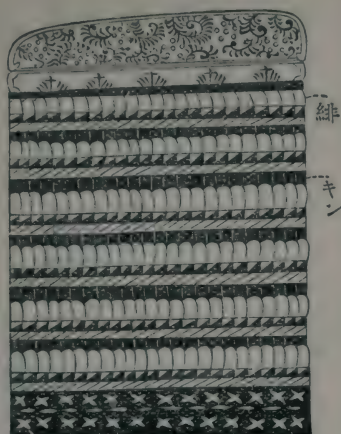 緋
キン